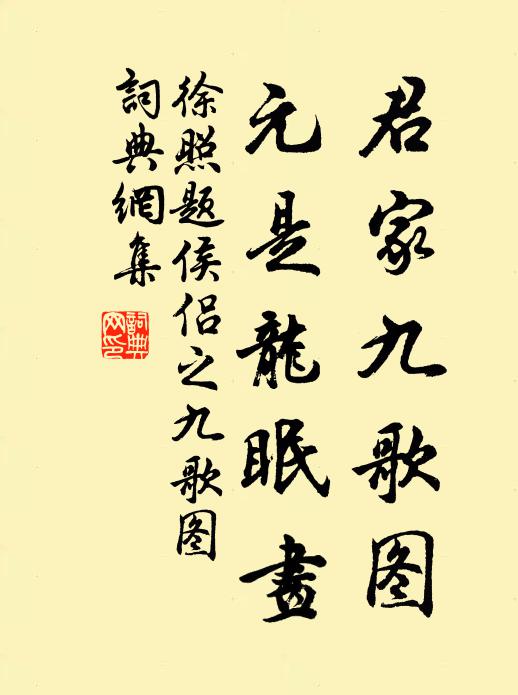 君家九歌图
元是龍眠畫
徐照题侯侣之九歌图
詞典網集
詞典網印